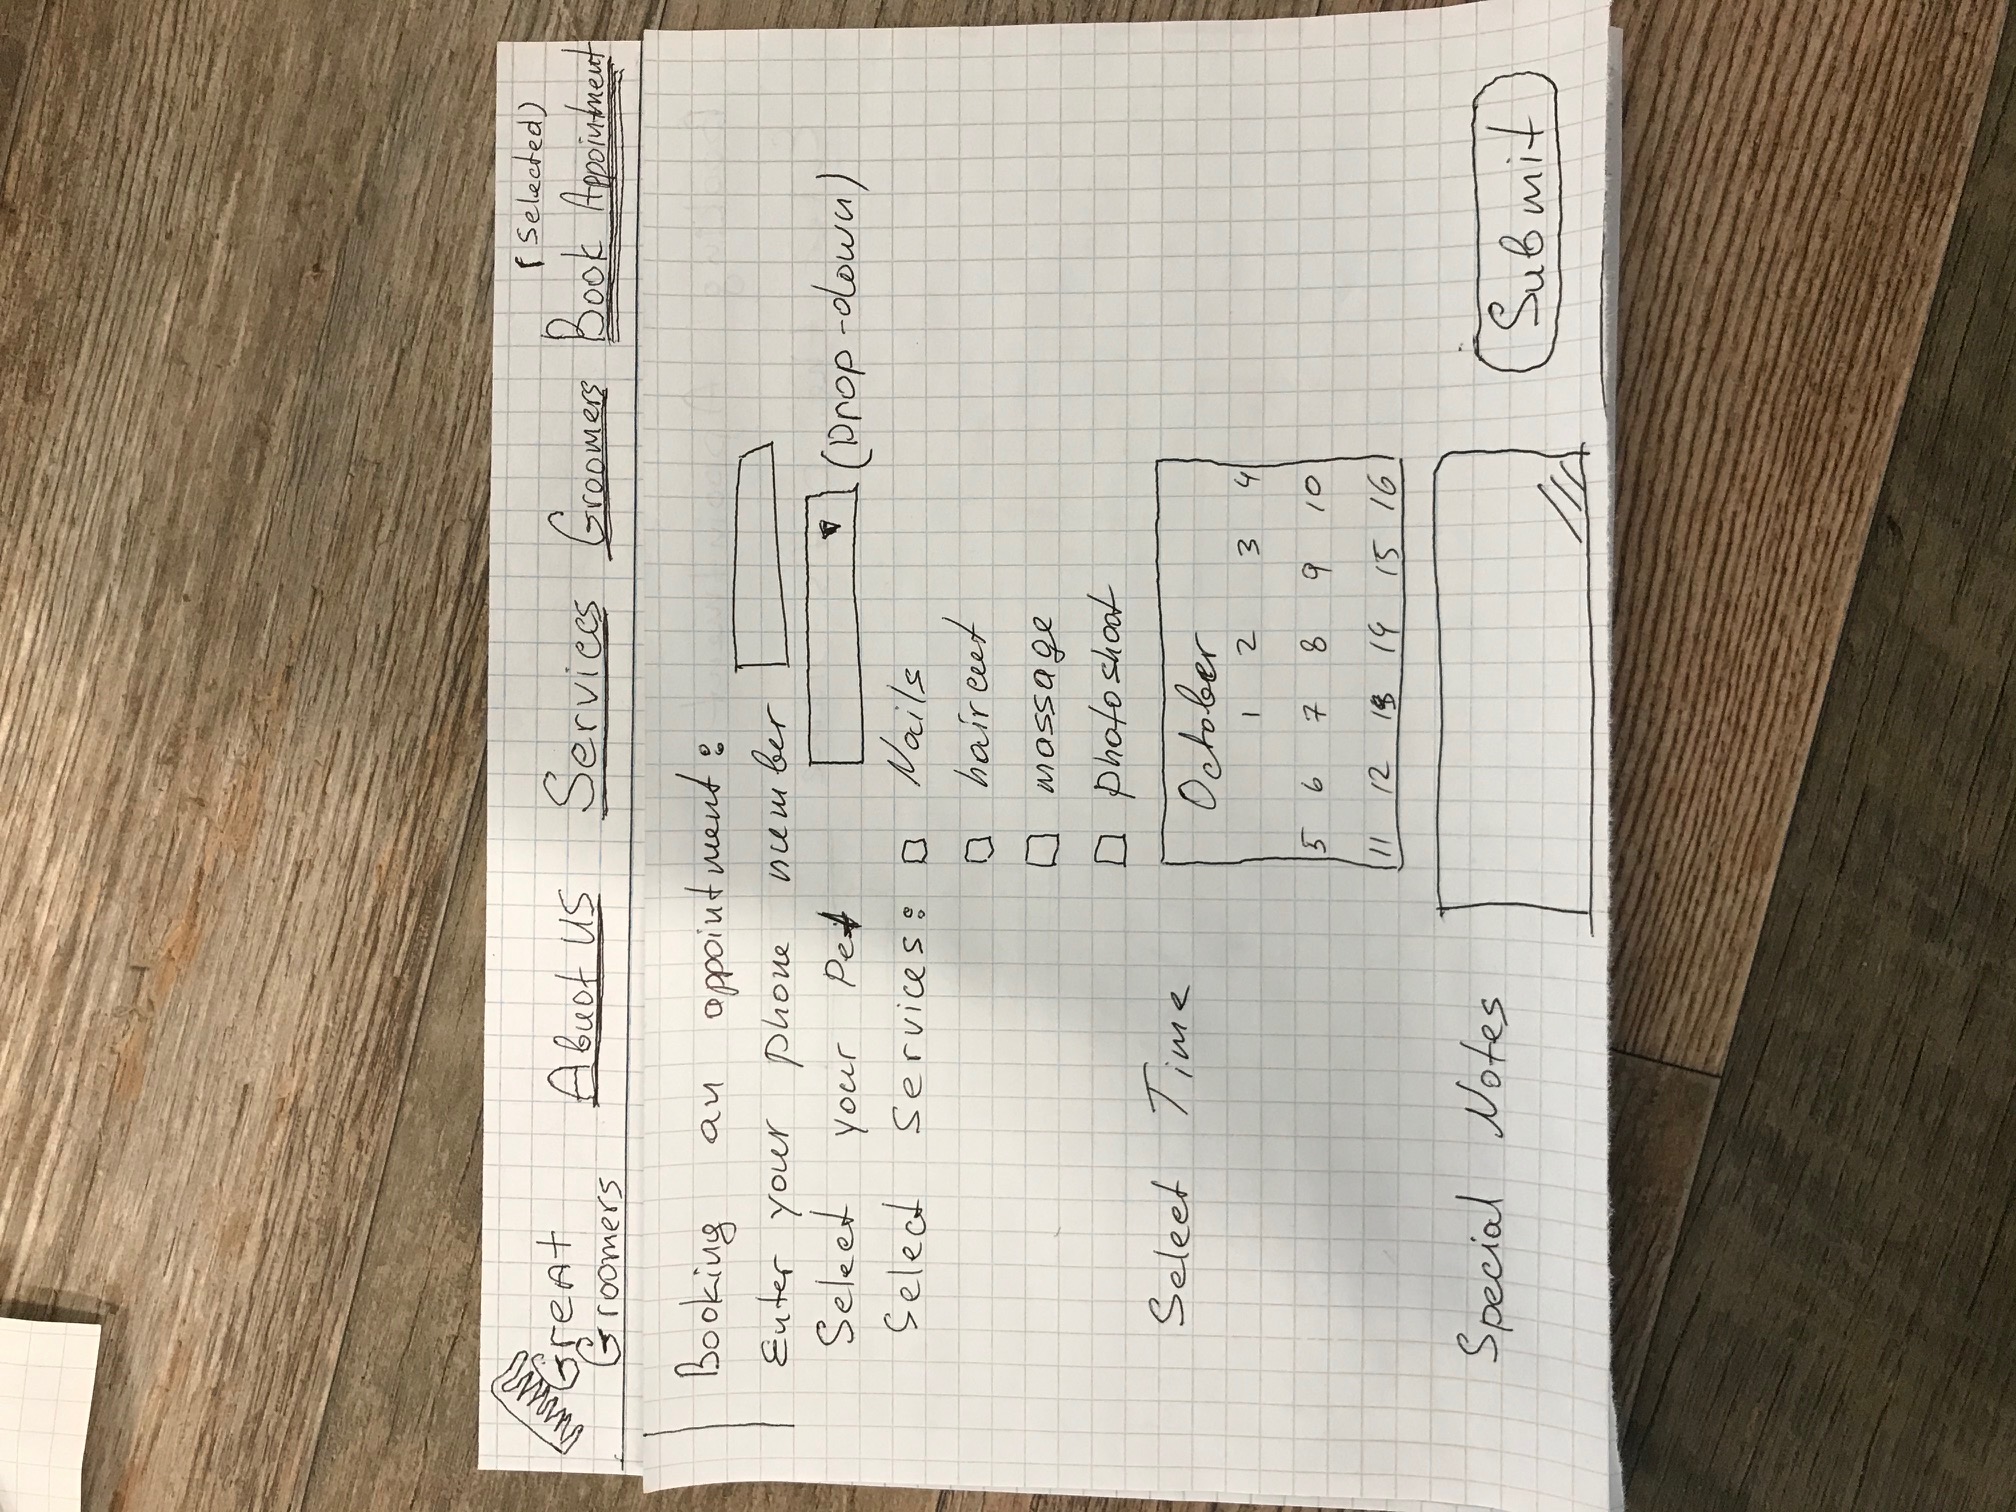 Great
Groomers
Abuot US
Services
Groomers
(Selected)
Book Appointment
Booking an appointment:
Enter your phone number
Select your Pet
(Drop-down)
Select Services: Nails
haircut
massage
photoshoot
Select Time
October
1 2 3 4
5 6 7 8 9 10
11 12 13 14 15 16
Special Notes
Submit